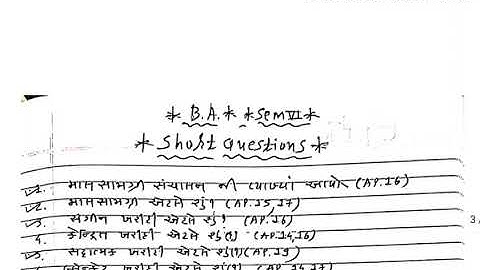 * B.A. * * Sem VI *
* Short Questions *
1. માલસામગ્રી સંચાલન ની વ્યાખ્યા આપો. (AP.16)
2. માલસામગ્રી એટલે શું? (AP.15,17)
3. સંગીન ખરીદી એટલે શું? (AP.16)
4. કેન્દ્રિત ખરીદી એટલે શું(?) (AP.14,16)
5. સટ્ટાત્મક ખરીદી એટલે શું(?) (AP.19)
ખરીદી એટલે શું(?) (AP.14,17)
3